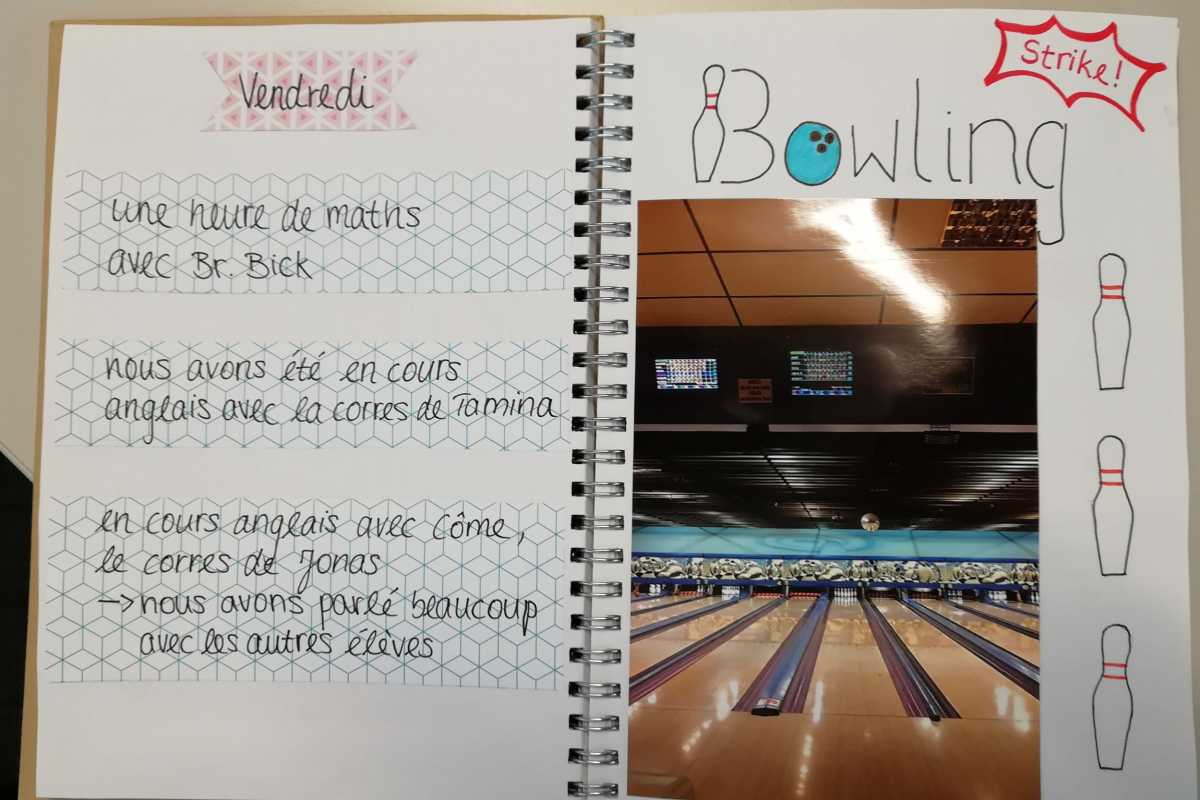 Vendredi
une heure de maths
avec Br. Bick
nous avons été en cours
anglais avec la corres de Tamina
en cours anglais avec Côme,
le corres de Jonas
→ nous avons parlé beaucoup
avec les autres élèves
Strike!
Bowling